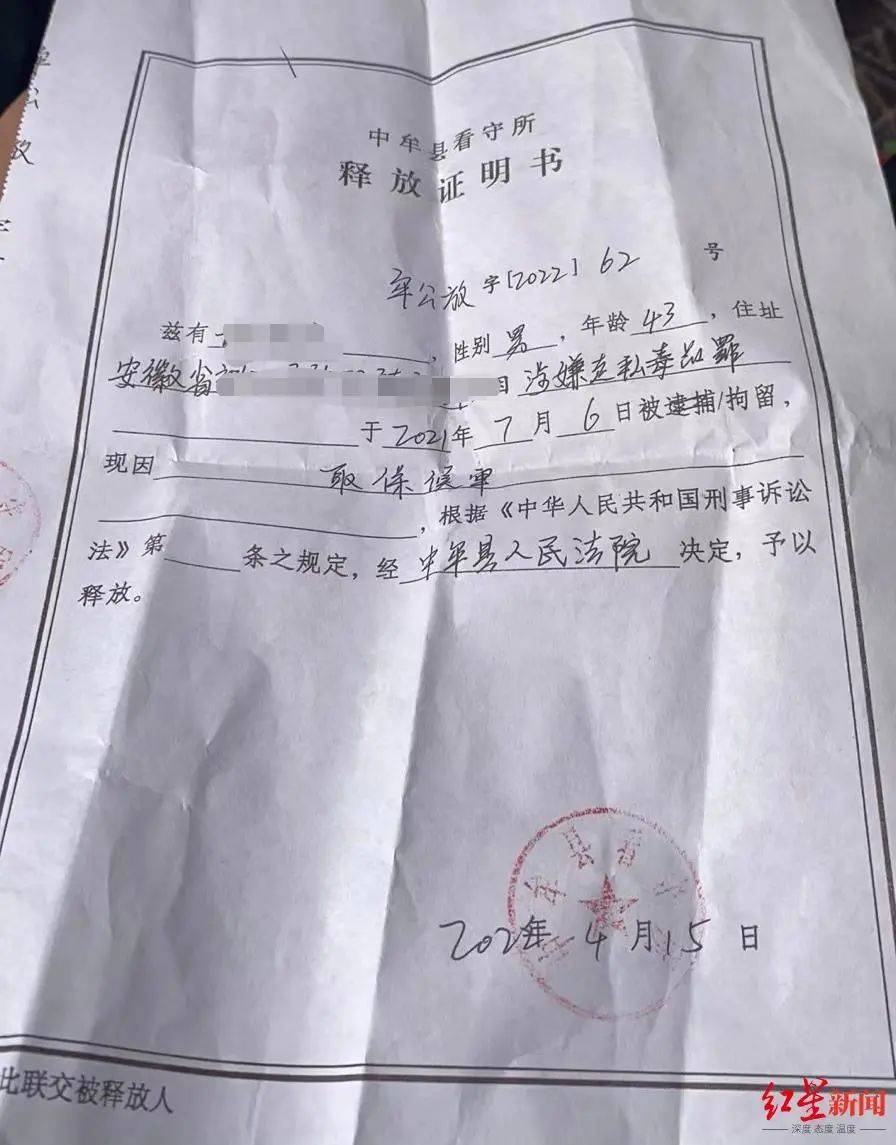 中牟县看守所
释放证明书
牟公放字[2022] 62 号
兹有，性别男，年龄43，住址
安徽省 因 涉嫌走私毒品罪
于2021年7月6日被逮捕/拘留，
现因 取保候审
，根据《中华人民共和国刑事诉讼
法》第 条之规定，经中牟县人民法院决定，予以
释放。
2022年4月15日
此联交被释放人
红星新闻
深度 态度 温度